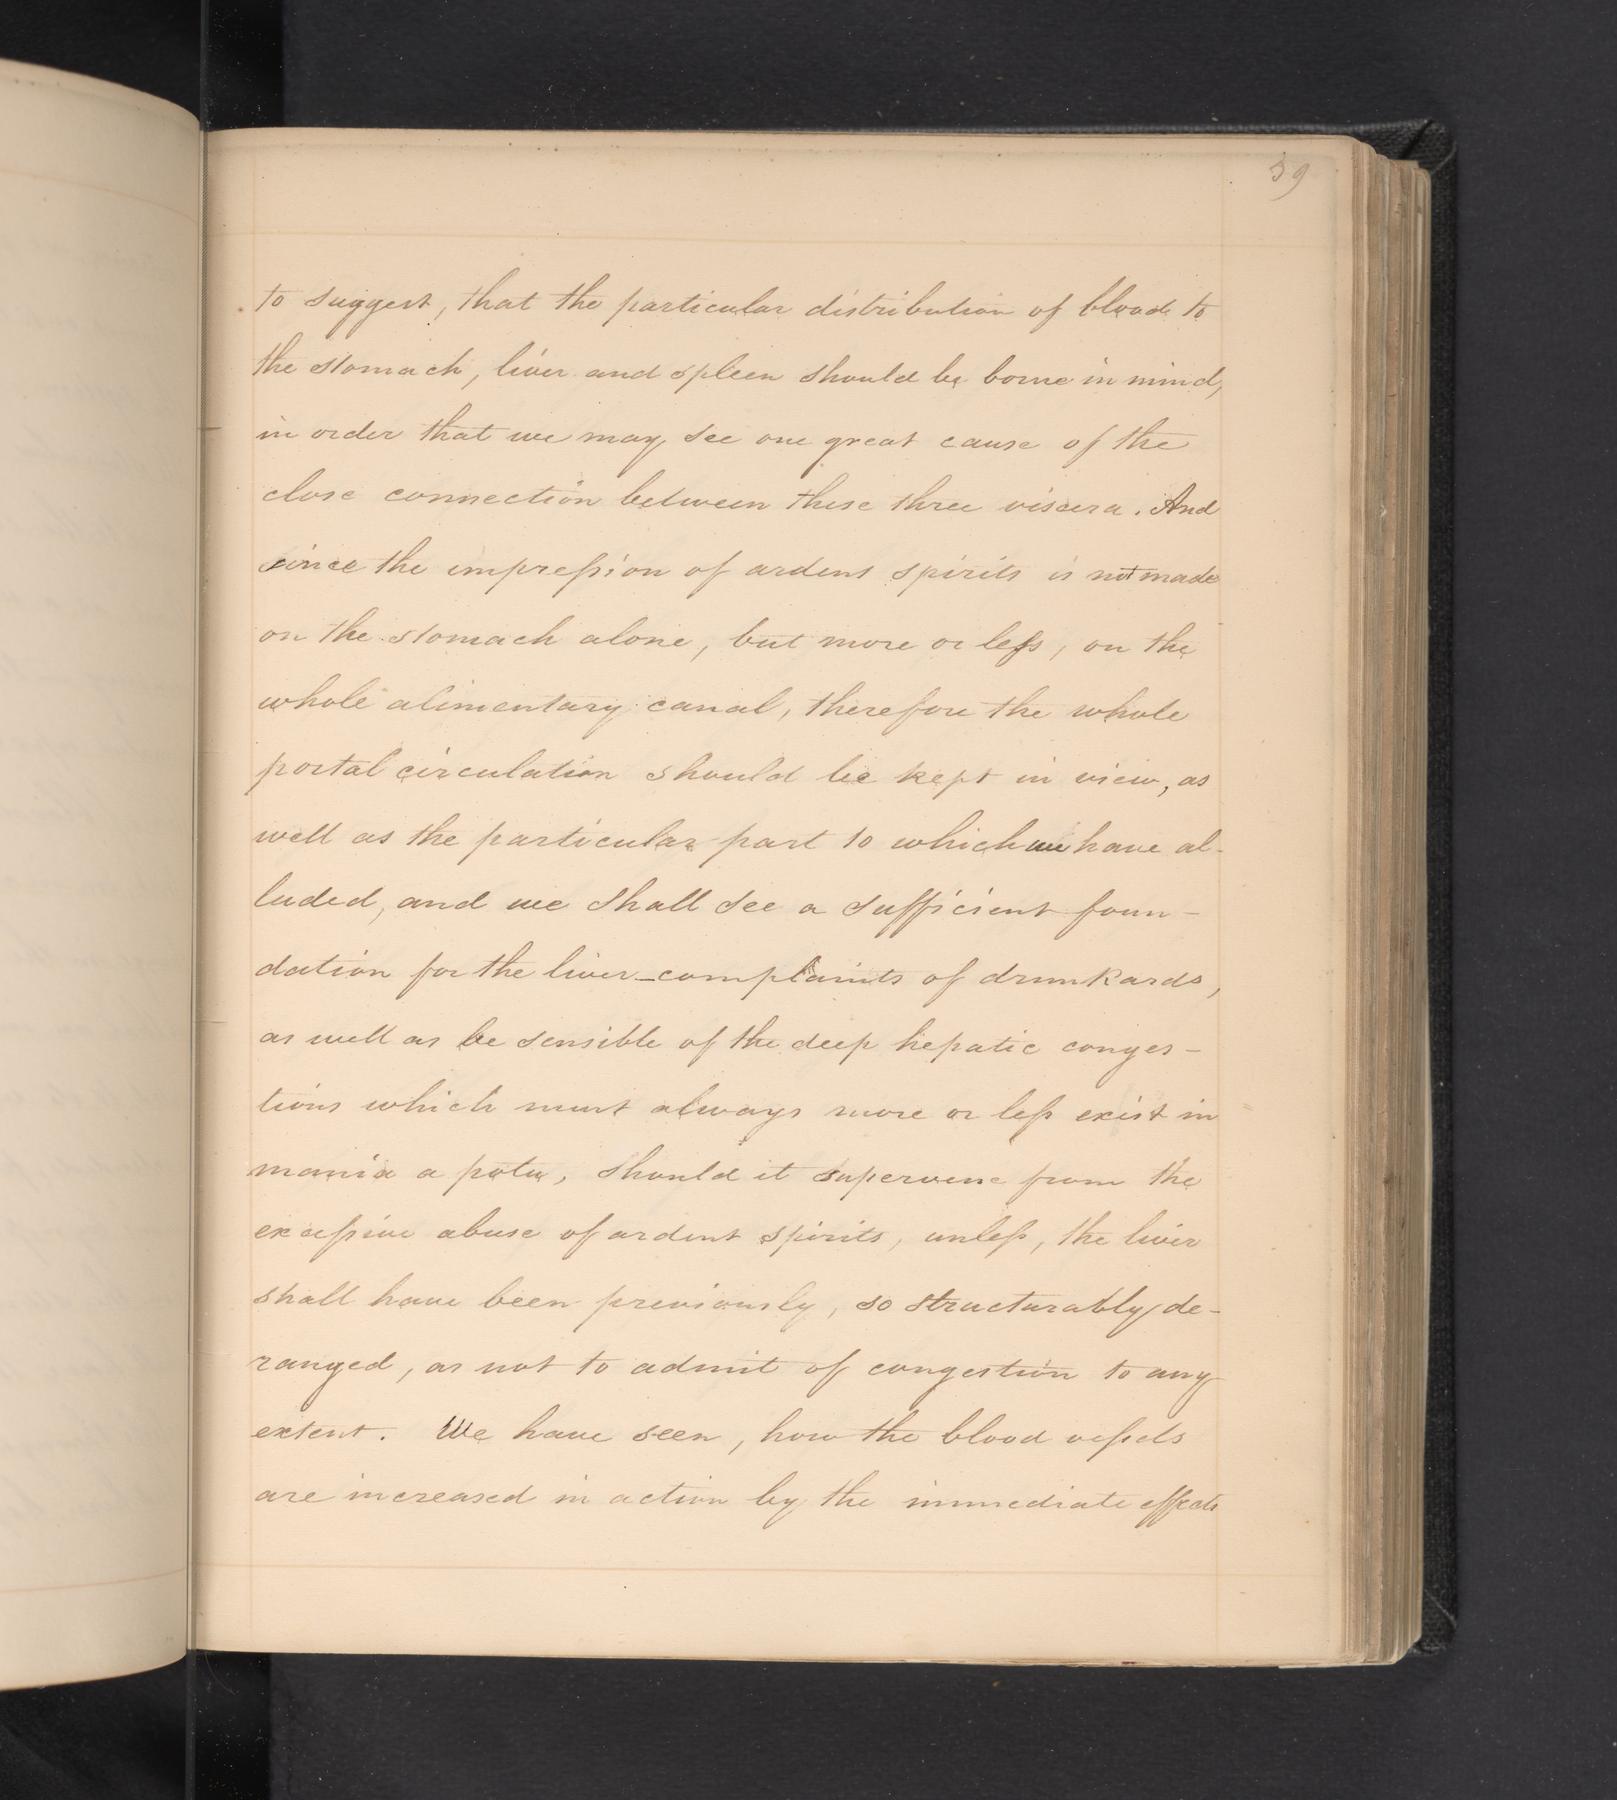 39
to suggest, that the particular distribution of blood to
the stomach, liver and spleen should be borne in mind,
in order that we may see one great cause of the
close connection between these three viscera. And
since the impression of ardent spirits is not made
on the stomach alone, but more or less, on the
whole alimentary canal, therefore the whole
portal circulation should be kept in view, as
well as the particular part to which we have al-
luded, and we shall see a sufficient foun-
dation for the liver-complaints of drunkards,
as well as be sensible of the deep hepatic conges-
tions which must always more or less exist in
mania a potu, should it supervene from the
excessive abuse of ardent spirits, unless, the liver
shall have been previously, so structurably de-
ranged, as not to admit of congestion to any
extent. We have seen, how the blood vessels
are increased in action by the immediate effects